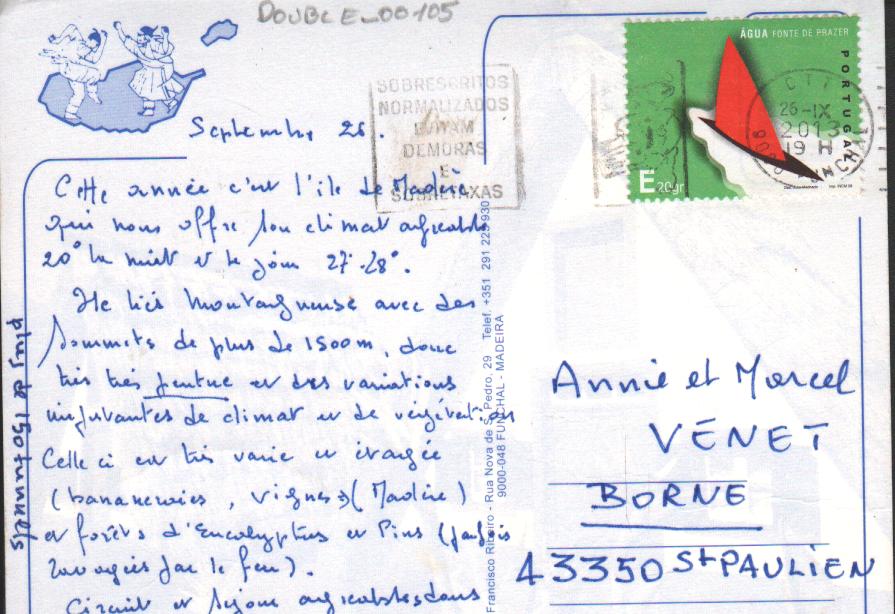 DOUBLE_00105
Septembre 26.
Cette année c'est l'île de Madère
qui nous offre son climat agréable
20° la nuit et le jour 27-28°.
Ile très montagneuse avec des
sommets de plus de 1500m, donc
très très pentue et des variations
importantes de climat et de végétation
Celle ci est très varié et étagée
(bananeraies, vignes (Madère)
et forêts d'Eucalyptus et Pins (parfois
ravagées par le feu).
Circuit et séjour agréables dans
plus de 150 tunnels
SOBRESCRITOS
NORMALIZADOS
EVITAM
DEMORAS
E
SOBRETAXAS
ÁGUA FONTE DE PRAZER
PORTUGAL
E 20gr
CTT
26-IX
2013
19 H
Francisco Ribeiro - Rua Nova de S. Pedro, 29 Telef. +351 291 223 930
9000-048 FUNCHAL - MADEIRA
Annie et Marcel
VENET
BORNE
43350 St PAULIEN